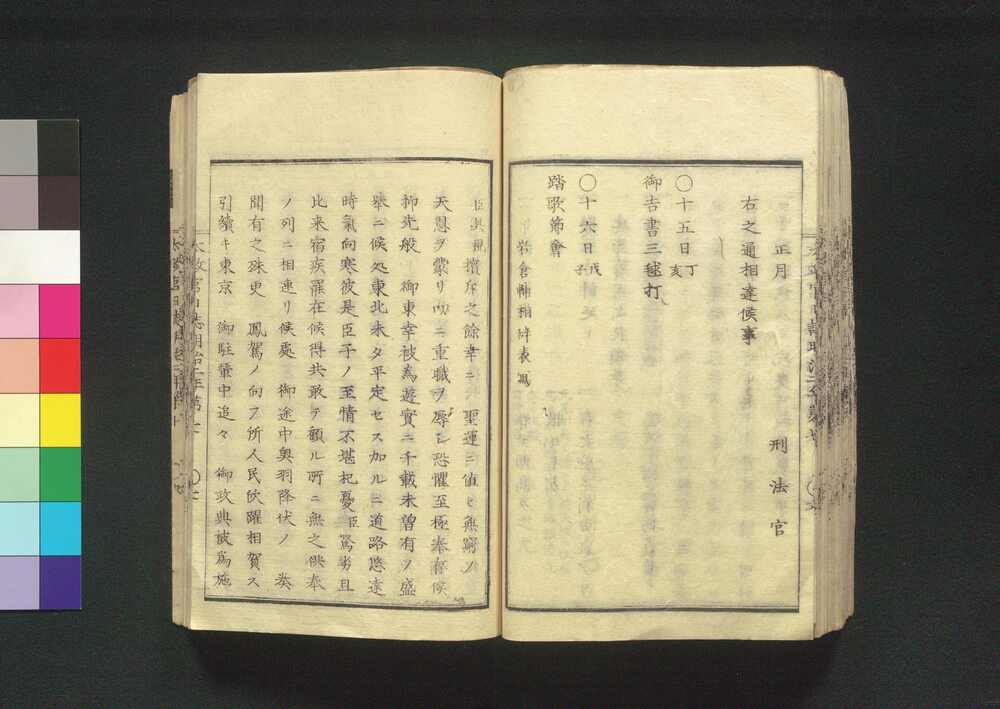 正月
刑法官
右之通相達候事
〇十五日丁亥
御吉書三毬打
〇十六日戊子
踏歌節會
岩倉輔相辞表寫
臣具視擯斥之餘幸ニ 聖運ニ値ヒ無窮ノ
天恩ヲ蒙リ叨ニ重職ヲ辱シ恐懼至極奉存候
抑先般 御東幸被為遊實ニ千載未曽有ノ盛
舉ニ候処東北未タ平定セス加ルニ道路悠遠
時氣向寒彼是臣子ノ至情不堪杞憂臣駑劣且
比来宿疾罹在候得共敢テ顧ル所ニ無之供奉
ノ列ニ相連リ候處 御途中奥羽降伏ノ 奏
聞有之殊更 鳳駕ノ向フ所人民欣躍相賀ス
引續キ東京 御駐輦中追々 御政典被為施